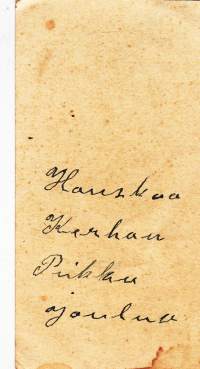 Hauskaa
Kerhon
Pikku
ajouluu